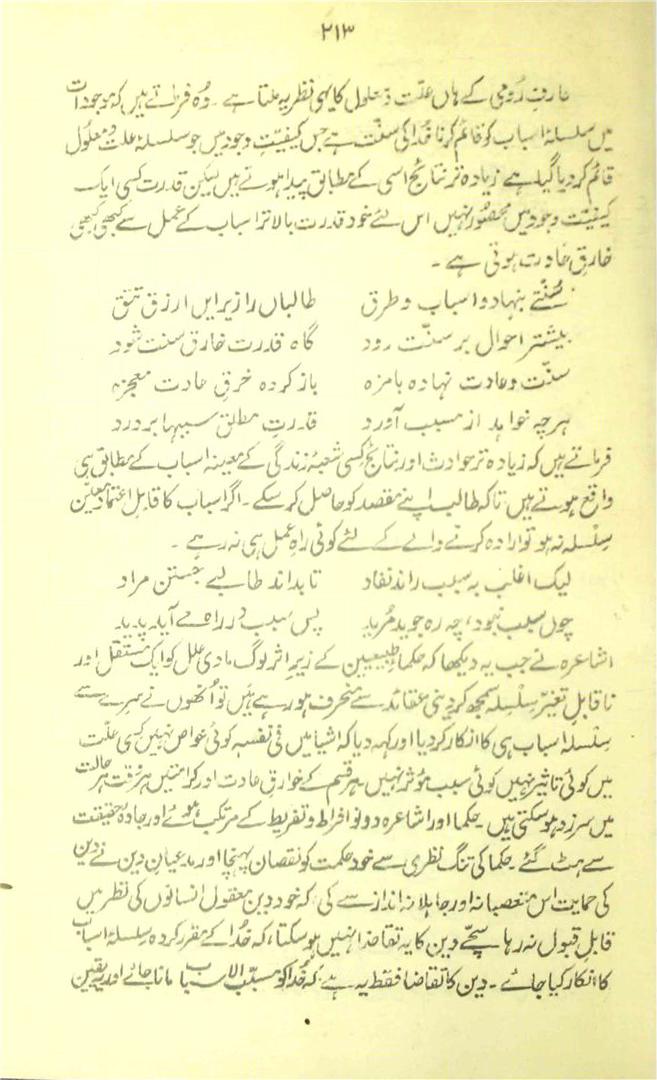 ۲۱۳
عارفِ رومی کے ہاں علّت و معلول کا یہی نظریہ ملتا ہے۔ وہ فرماتے ہیں کہ موجودات
میں سلسلۂ اسباب کو قائم کرنا خدا کی سنّت ہے جس کیفیتِ وجود میں جو سلسلۂ علت و معلول
قائم کر دیا گیا ہے زیادہ تر نتائج اسی کے مطابق پیدا ہوتے ہیں لیکن قدرت کسی ایک
کیفیت وجود میں محصور نہیں اس لئے خود قدرت بالاتر اسباب کے عمل سے کبھی کبھی
خارقِ عادت ہوتی ہے۔
سُنّتے بنہاد و اسباب و طرق     طالباں را زیر ایں ارزق تتق
بیشتر احوال بر سنّت رود     گاہ قدرت خارق سنت شود
سنّت و عادت نہادہ بامزہ     باز کردہ خرقِ عادت معجزہ
ہرچہ خواہد از مسبب آورد     قدرتِ مطلق سببہا بر درد
فرماتے ہیں کہ زیادہ تر حوادث اور نتائج کسی شعبۂ زندگی کے معینہ اسباب کے مطابق ہی
واقع ہوتے ہیں تاکہ طالب اپنے مقصد کو حاصل کر سکے۔ اگر اسباب کا قابلِ اعتماد معین
سلسلہ نہ ہو تو ارادہ کرنے والے کے لئے کوئی راہِ عمل ہی نہ رہے۔
لیک اغلب بہ سبب راند نفاد     تا بداند طالبے جستن مراد
چوں سبب نبود، چہ رہ جوید مُرید     پس سبب در راہ مے آید پدید
اشاعرہ نے جب یہ دیکھا کہ حکماءِ طبیعیین کے زیرِ اثر لوگ مادی علل کو ایک مستقل اور
ناقابل تغیّر سلسلہ سمجھ کر دینی عقائد سے منحرف ہو رہے ہیں تو اُنھوں نے سرے سے
سلسلہ اسباب ہی کا انکار کر دیا اور کہہ دیا کہ اشیا میں فی نفسہ کوئی خواص نہیں کسی علّت
میں کوئی تاثیر نہیں کوئی سبب مؤثر نہیں ہر قسم کے خوارقِ عادت اور کرامتیں ہر وقت ہر حالت
میں سرزد ہو سکتی ہیں۔ حکما اور اشاعرہ دونو افراط و تفریط کے مرتکب ہوئے اور جادۂ حقیقت
سے ہٹ گئے۔ حکما کی تنگ نظری سے خود حکمت کو نقصان پہنچا اور مدعیانِ دین نے دین
کی حمایت اس متعصبانہ اور جاہلانہ انداز سے کی کہ خود دین معقول انسانوں کی نظر میں
قابلِ قبول نہ رہا۔ سچّے دین کا یہ تقاضا نہیں ہو سکتا، کہ خُدا کے مقرر کردہ سلسلۂ اسباب
کا انکار کیا جائے۔ دین کا تقاضا فقط یہ ہے کہ خُدا کو مسبّب الاسباب مانا جائے اور یہ یقین